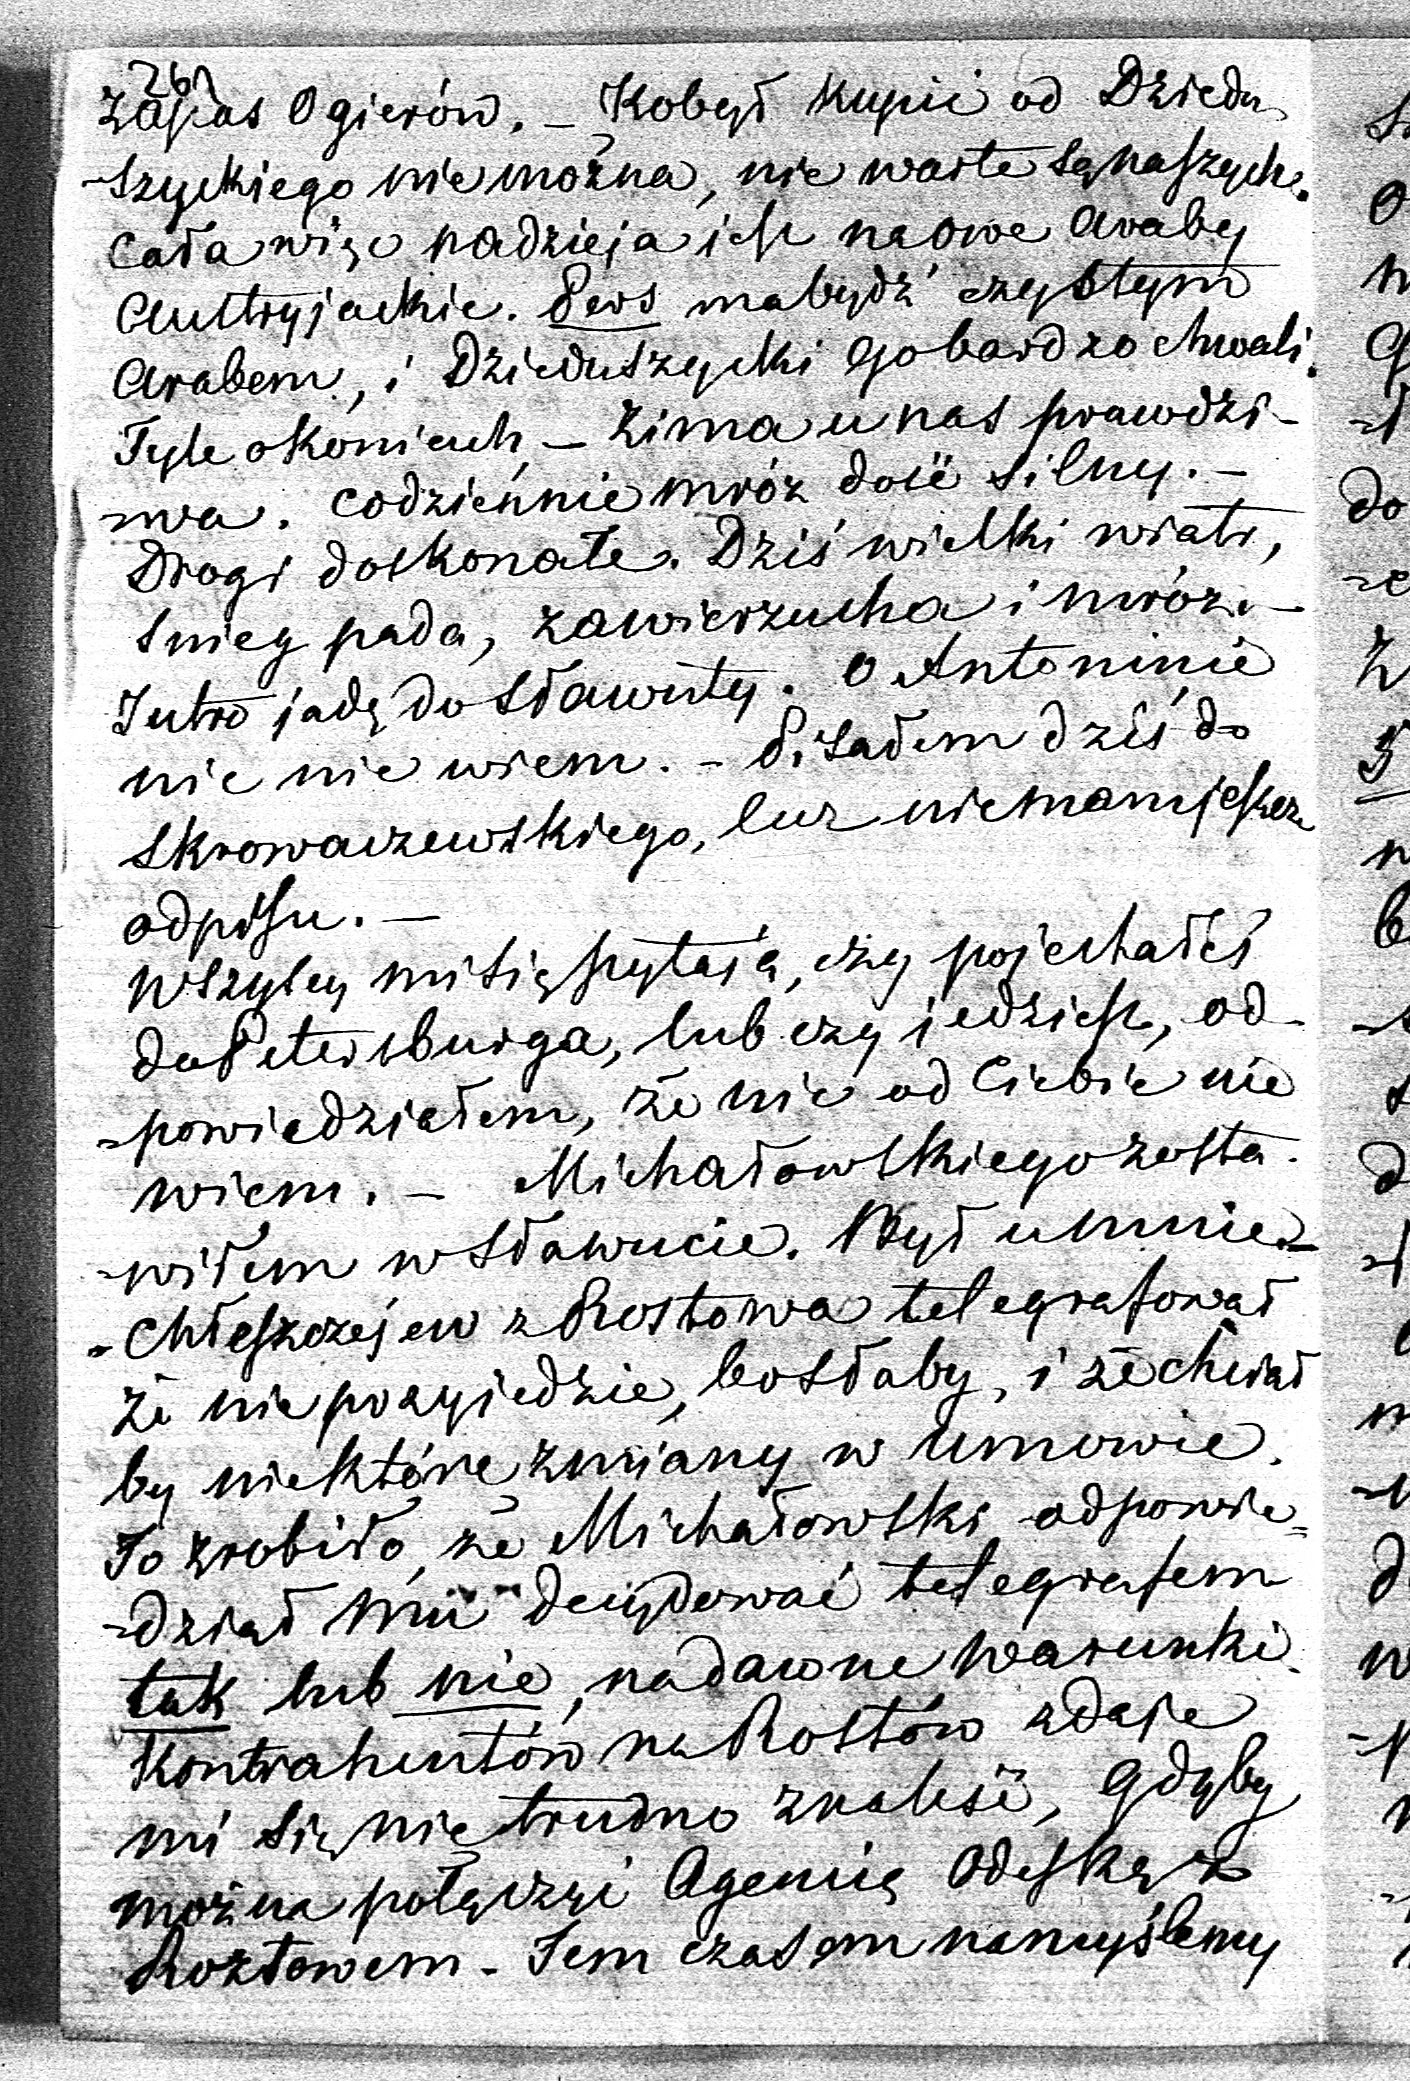 261
zapas Ogierów. – Kobył kupić od Dziedu
-szyckiego nie można, nie warte są naszych.
Cała więc nadzieja jest na owe Araby
Austryjackie. Pers ma bydź czystym
Arabem, i Dzieduszycki go bardzo chwali.
Tyle o koniach – Zima u nas prawdzi-
-wa. Codziennie mróz dość silny. –
Drogi doskonałe. Dziś wielki wiatr,
śnieg pada, zawierzucha i mróz. –
Jutro jadę do Sławuty. O Antoninie
nic nie wiem. – Pisałem dziś do
Skrowaczewskiego, lecz nie mam jeszcze
odpisu. –
Wszyscy mi się pytają, czy pojechałeś
do Petersburga, lub czy jedziesz, od-
-powiedziałem, że nic od Ciebie nie
wiem. – Michałowskiego zosta-
-wiłem w Sławucie. Był u mnie –
-Chłeszczejew z Rostowa telegrafował
że nie przyjedzie, bo słaby, i że chciał
by niektóre zmiany w umowie.
To zrobiło, że Michałowski odpowie-
-dział mu decydować telegrafem
tak lub nie, na dawne warunki.
Kontrahentów na Rostów zdaje
mi się nie trudno znaleść, gdyby
można połączyć Agencią Odeską z
Roztowem. Tem czasem namyślemy